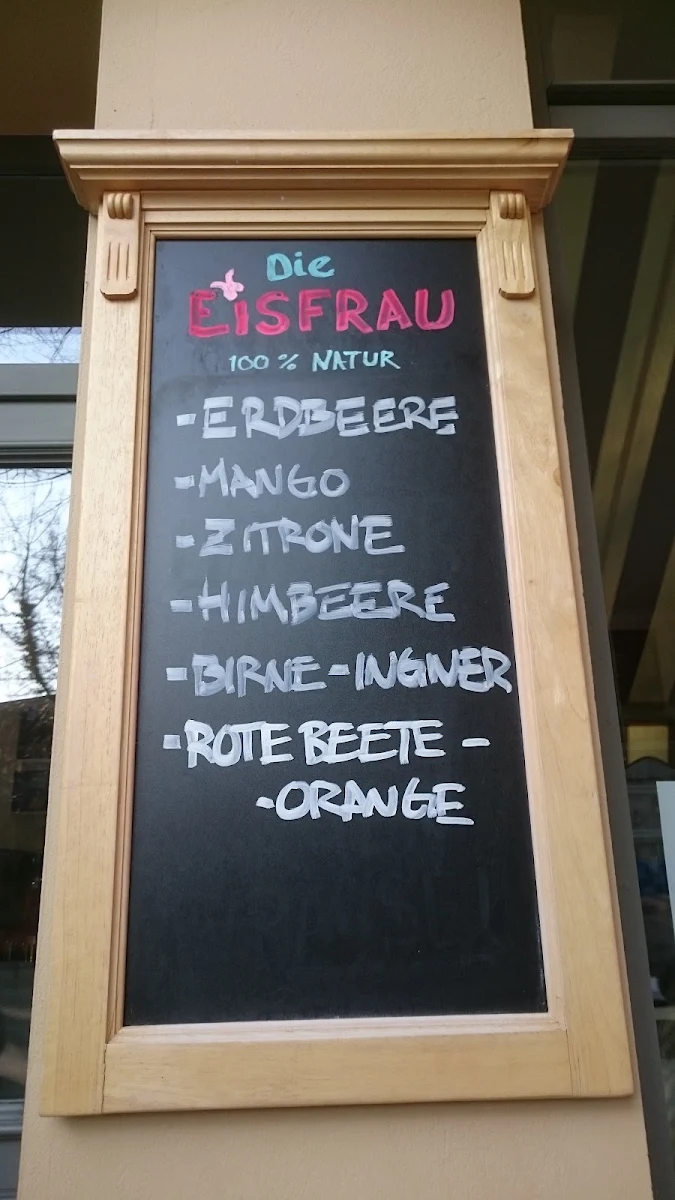 Die
EiSFRAU
100 % NATUR
-ERDBEERE
-MANGO
-ZITRONE
-HIMBEERE
-BIRNE-INGWER
-ROTE BEETE -
-ORANGE